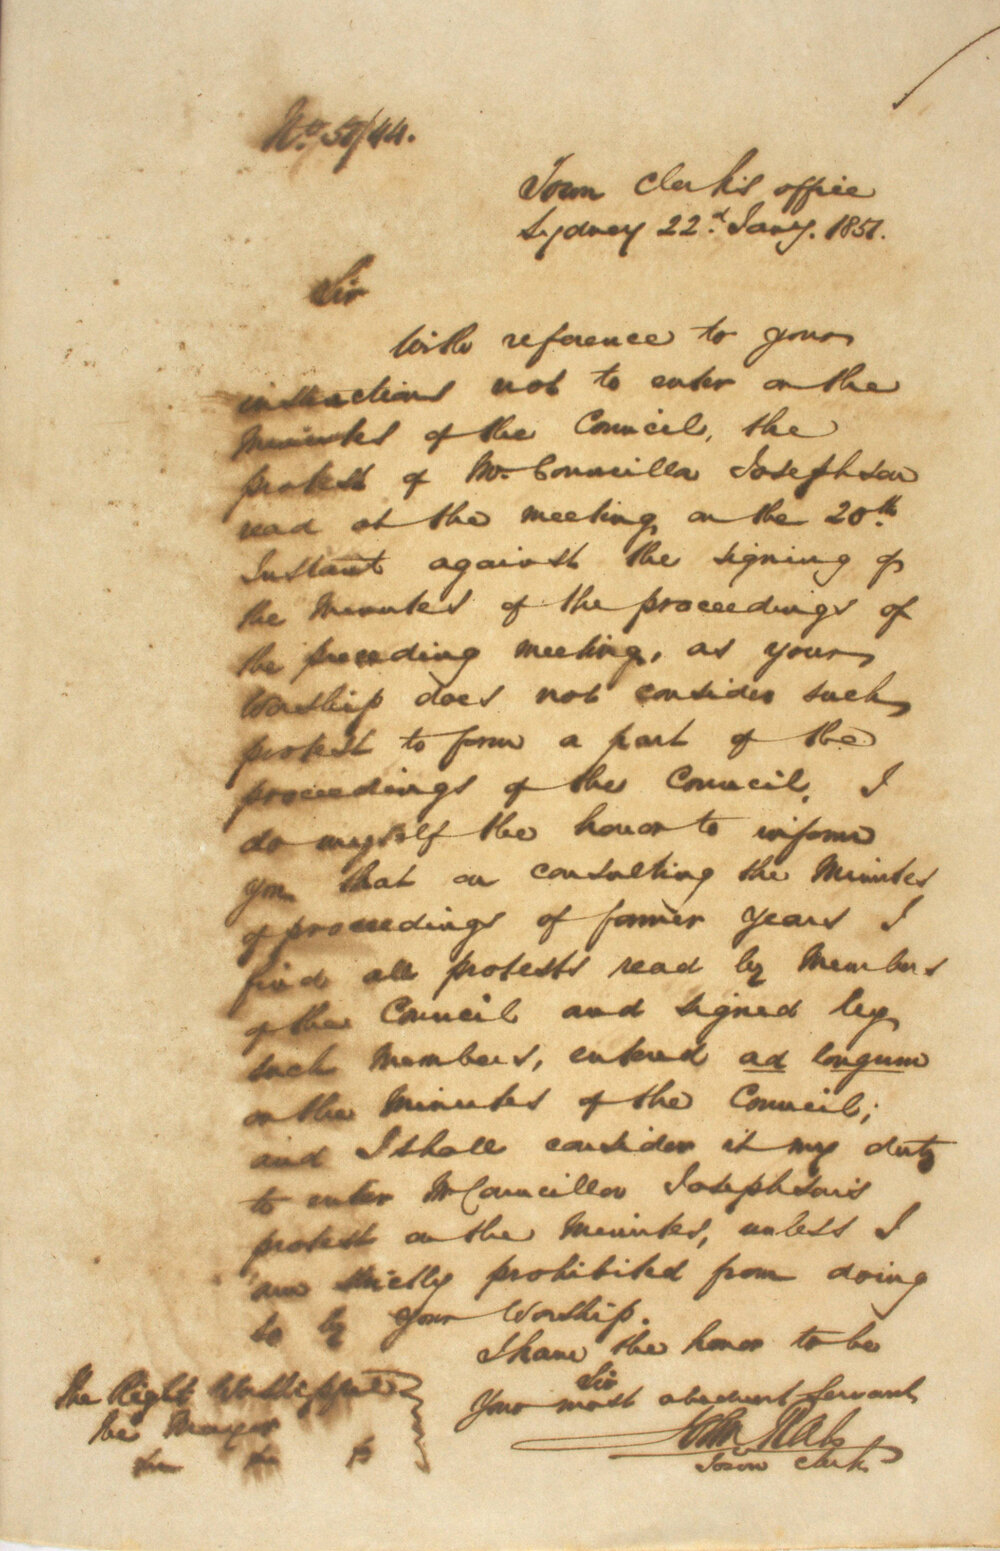 No. 51/44.
Town Clerk's office
Sydney 22d. Jany. 1851.
Sir
With reference to your
instructions not to enter on the
Minutes of the Council, the
protest of Mr. Councillor Josephson
read at the meeting on the 20th
Instant against the signing of
the Minutes of the proceedings of
the preceding meeting, as your
Worship does not consider such
protest to form a part of the
proceedings of the Council, I
do myself the honor to inform
you that on consulting the Minutes
of proceedings of former years I
find all protests read by Members
of the Council and signed by
such Members, entered ad longum
on the Minutes of the Council;
and I shall consider it my duty
to enter Mr Councillor Josephson's
protest on the Minutes, unless I
am strictly prohibited from doing
so by your Worship.
I have the honor to be
Sir
Your most obedient Servant
John
Town Clerk
The Right Worshipful
the Mayor